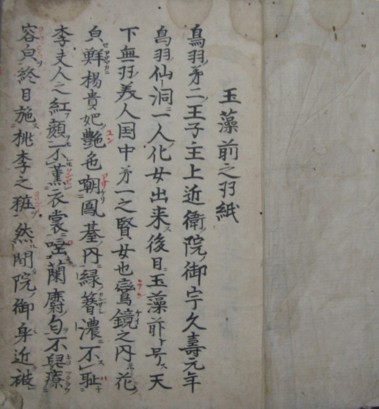 玉藻前之羽紙
鳥羽第二王子主上近衛院ノ御宇久壽元年
鳥羽仙洞一人化女出来ス後ニ目玉藻前ト号ス天
下無羽美人国中第一之賢女也鸞鏡之内ニハ花
皃鮮楊貴妃艶色嘲鳳墓丹緑簪濃不恥
李夫人之紅顔不薫衣裳蘭麝匂不
容皃終日施桃李之粧然間院御身近被